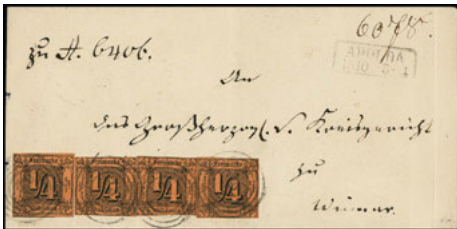 zu A. 6406.
APOLDA
An
das Großherzogl. S. Kreisgericht
zu
Weimar.
1/4 1/4 1/4 1/4